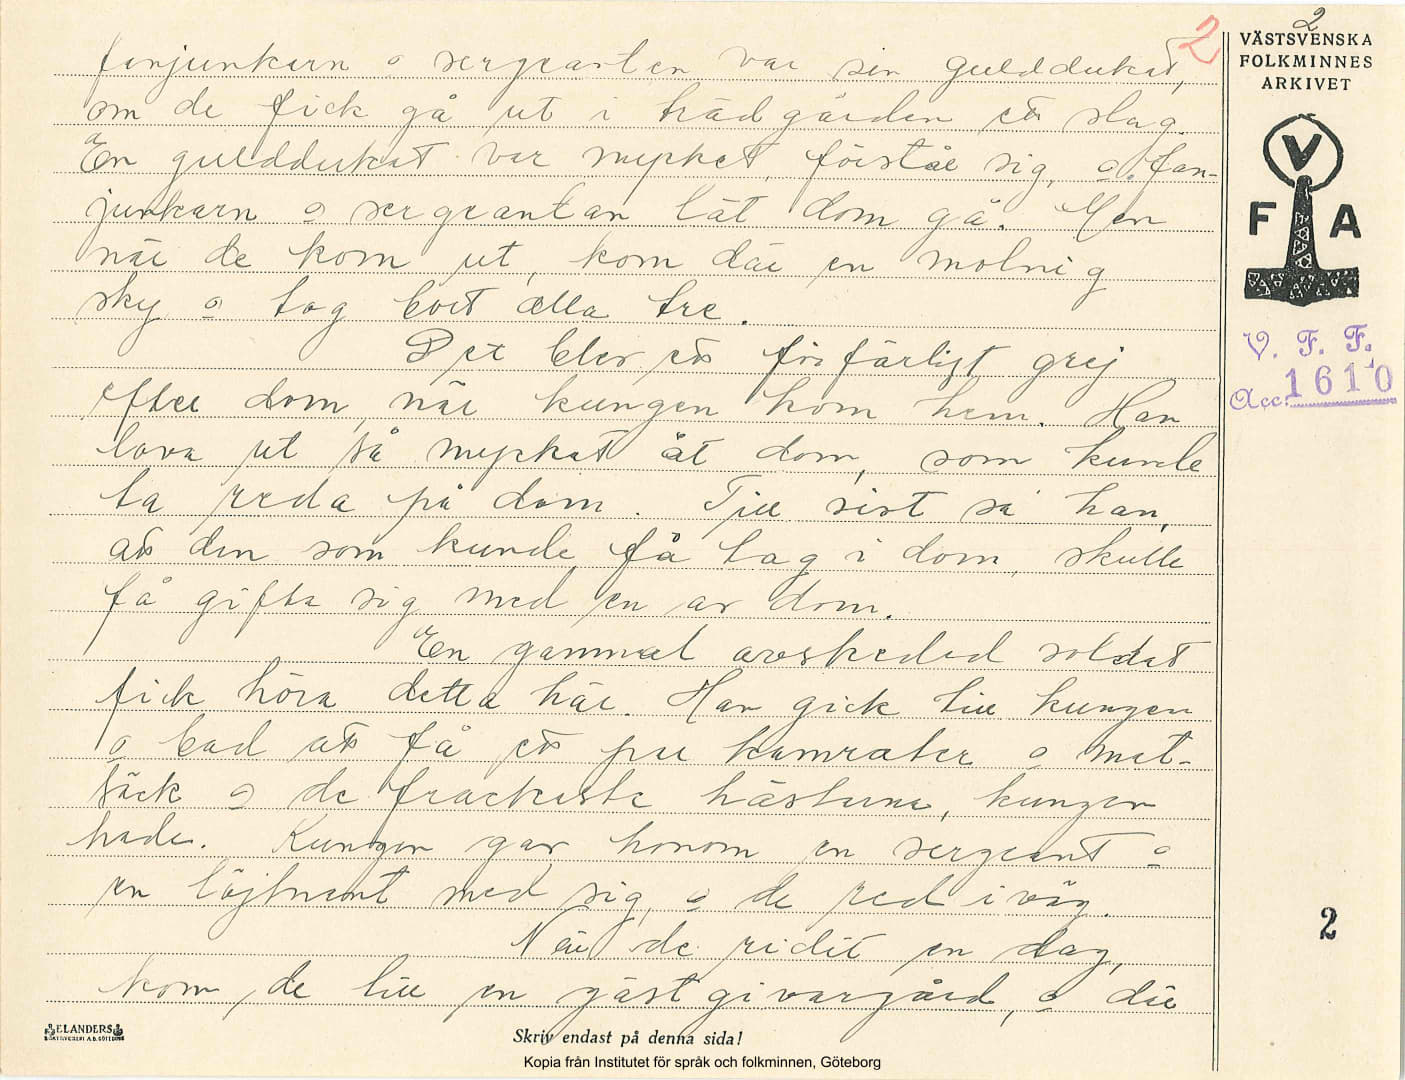 2
2
VÄSTSVENSKA
FOLKMINNES
ARKIVET
V
F A
V. F. F.
Acc. 1610
fanjunkarn o sergeanten var sin gulddukat,
om de fick gå ut i trädgården ett slag.
En gulddukat var mycket, förstår sig, o fan-
junkarn o sergeantan lät dom gå. Men
när de kom ut, kom där en molnig
sky o tog bort alla tre.
Det blev ett förfärligt grej
efter dom, när kungen kom hem. Han
lova ut så mycket åt dom, som kunde
ta reda på dom. Till sist sa han,
att den som kunde få tag i dom, skulle
få gifta sig med en av dom.
En gammal avskeded soldat
fick höra detta här. Han gick till kungen
o bad att få ett par kamrater o mat-
säck o de frackaste hästarna, kungen
hade. Kungen gav honom en sergeant o
en löjtnant med sig, o de red i väg.
När de ridit en dag,
kom de till en gästgivargård, o där
2
ELANDERS
Skriv endast på denna sida!
Kopia från Institutet för språk och folkminnen, Göteborg